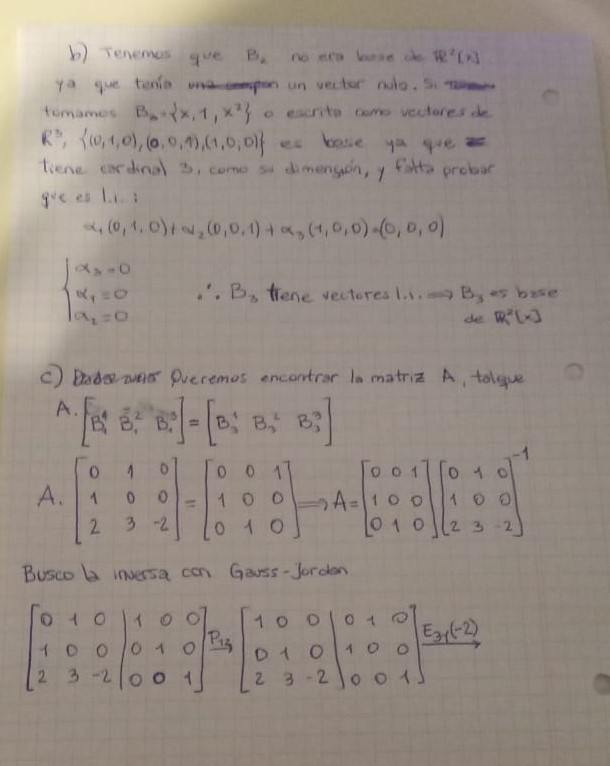 b) Tenemos que B₂ no era base de ℝ²[x]
ya que tenía un vector nulo. Si
tomamos B₃={x,1,x²} o escrito como vectores de
ℝ³, {(0,1,0),(0,0,1),(1,0,0)} es base ya que
tiene cardinal 3, como su dimensión, y falta probar
que es l.i.:
α₁(0,1,0)+α₂(0,0,1)+α₃(1,0,0)=(0,0,0)
α₃=0
α₁=0 ∴ B₃ tiene vectores l.i. ⟹ B₃ es base
α₂=0 de ℝ²[x]
c) Queremos encontrar la matriz A, talque
A.[B₁¹ B₁² B₁³]=[B₃¹ B₃² B₃³]
A. [0 1 0; 1 0 0; 2 3 -2] = [0 0 1; 1 0 0; 0 1 0] ⟹ A= [0 0 1; 1 0 0; 0 1 0] [0 1 0; 1 0 0; 2 3 -2]⁻¹
Busco la inversa con Gauss-Jordan
[0 1 0 | 1 0 0; 1 0 0 | 0 1 0; 2 3 -2 | 0 0 1] P₁₂→ [1 0 0 | 0 1 0; 0 1 0 | 1 0 0; 2 3 -2 | 0 0 1] E₃₁(-2)→